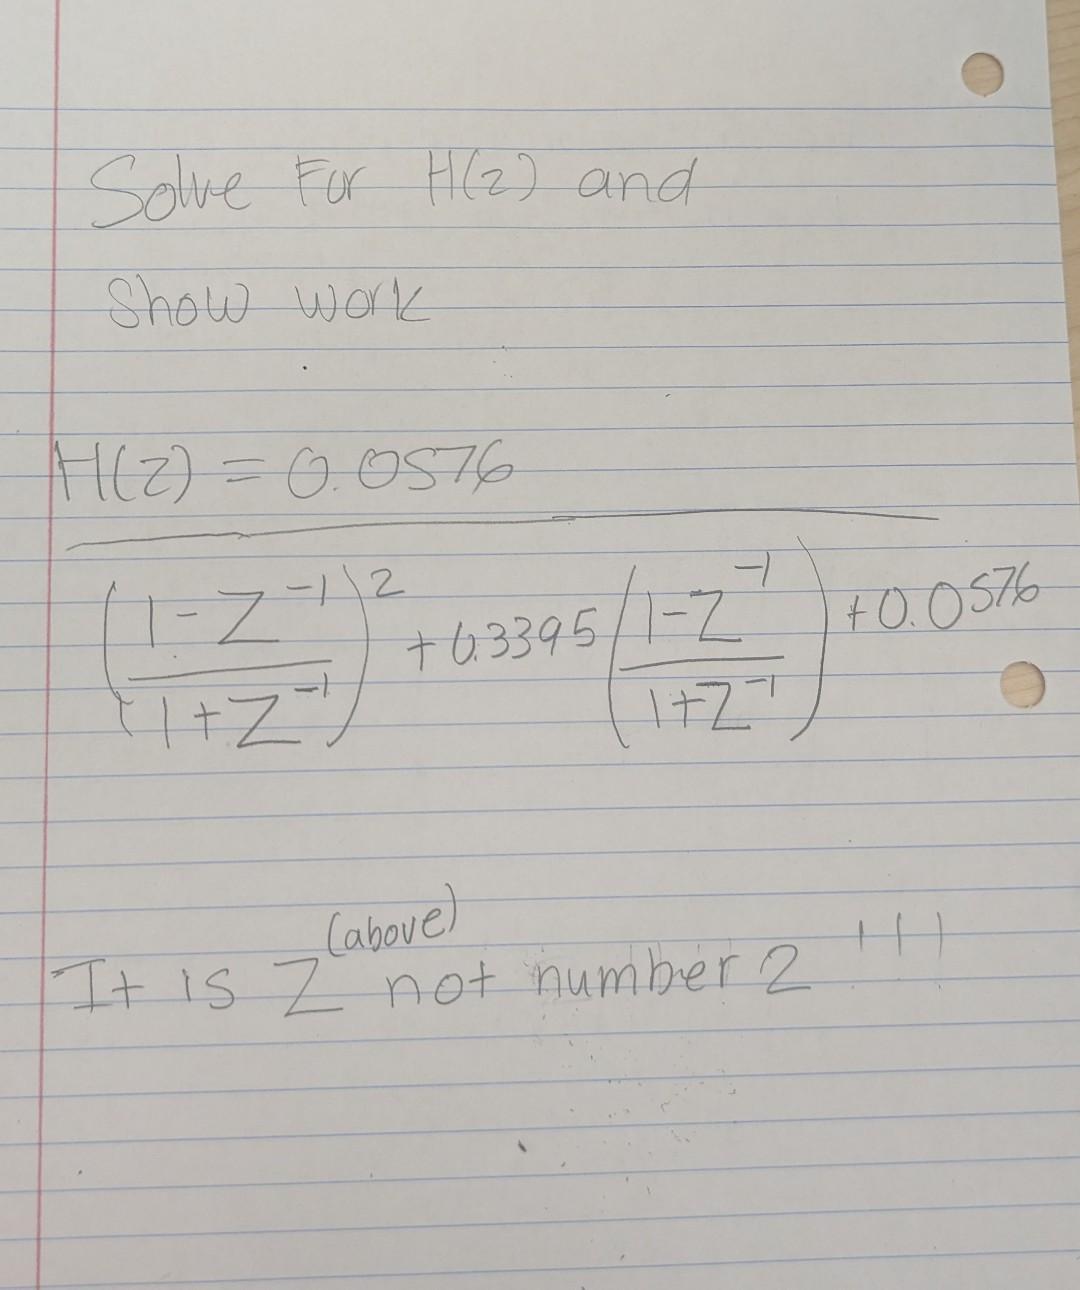 Solve For H(z) and
Show work
H(z) = 0.0576
(1-Z^-1 / 1+Z^-1)^2 + 0.3395 (1-Z^-1 / 1+Z^-1) + 0.0576
(above)
It is Z not number 2 !!!